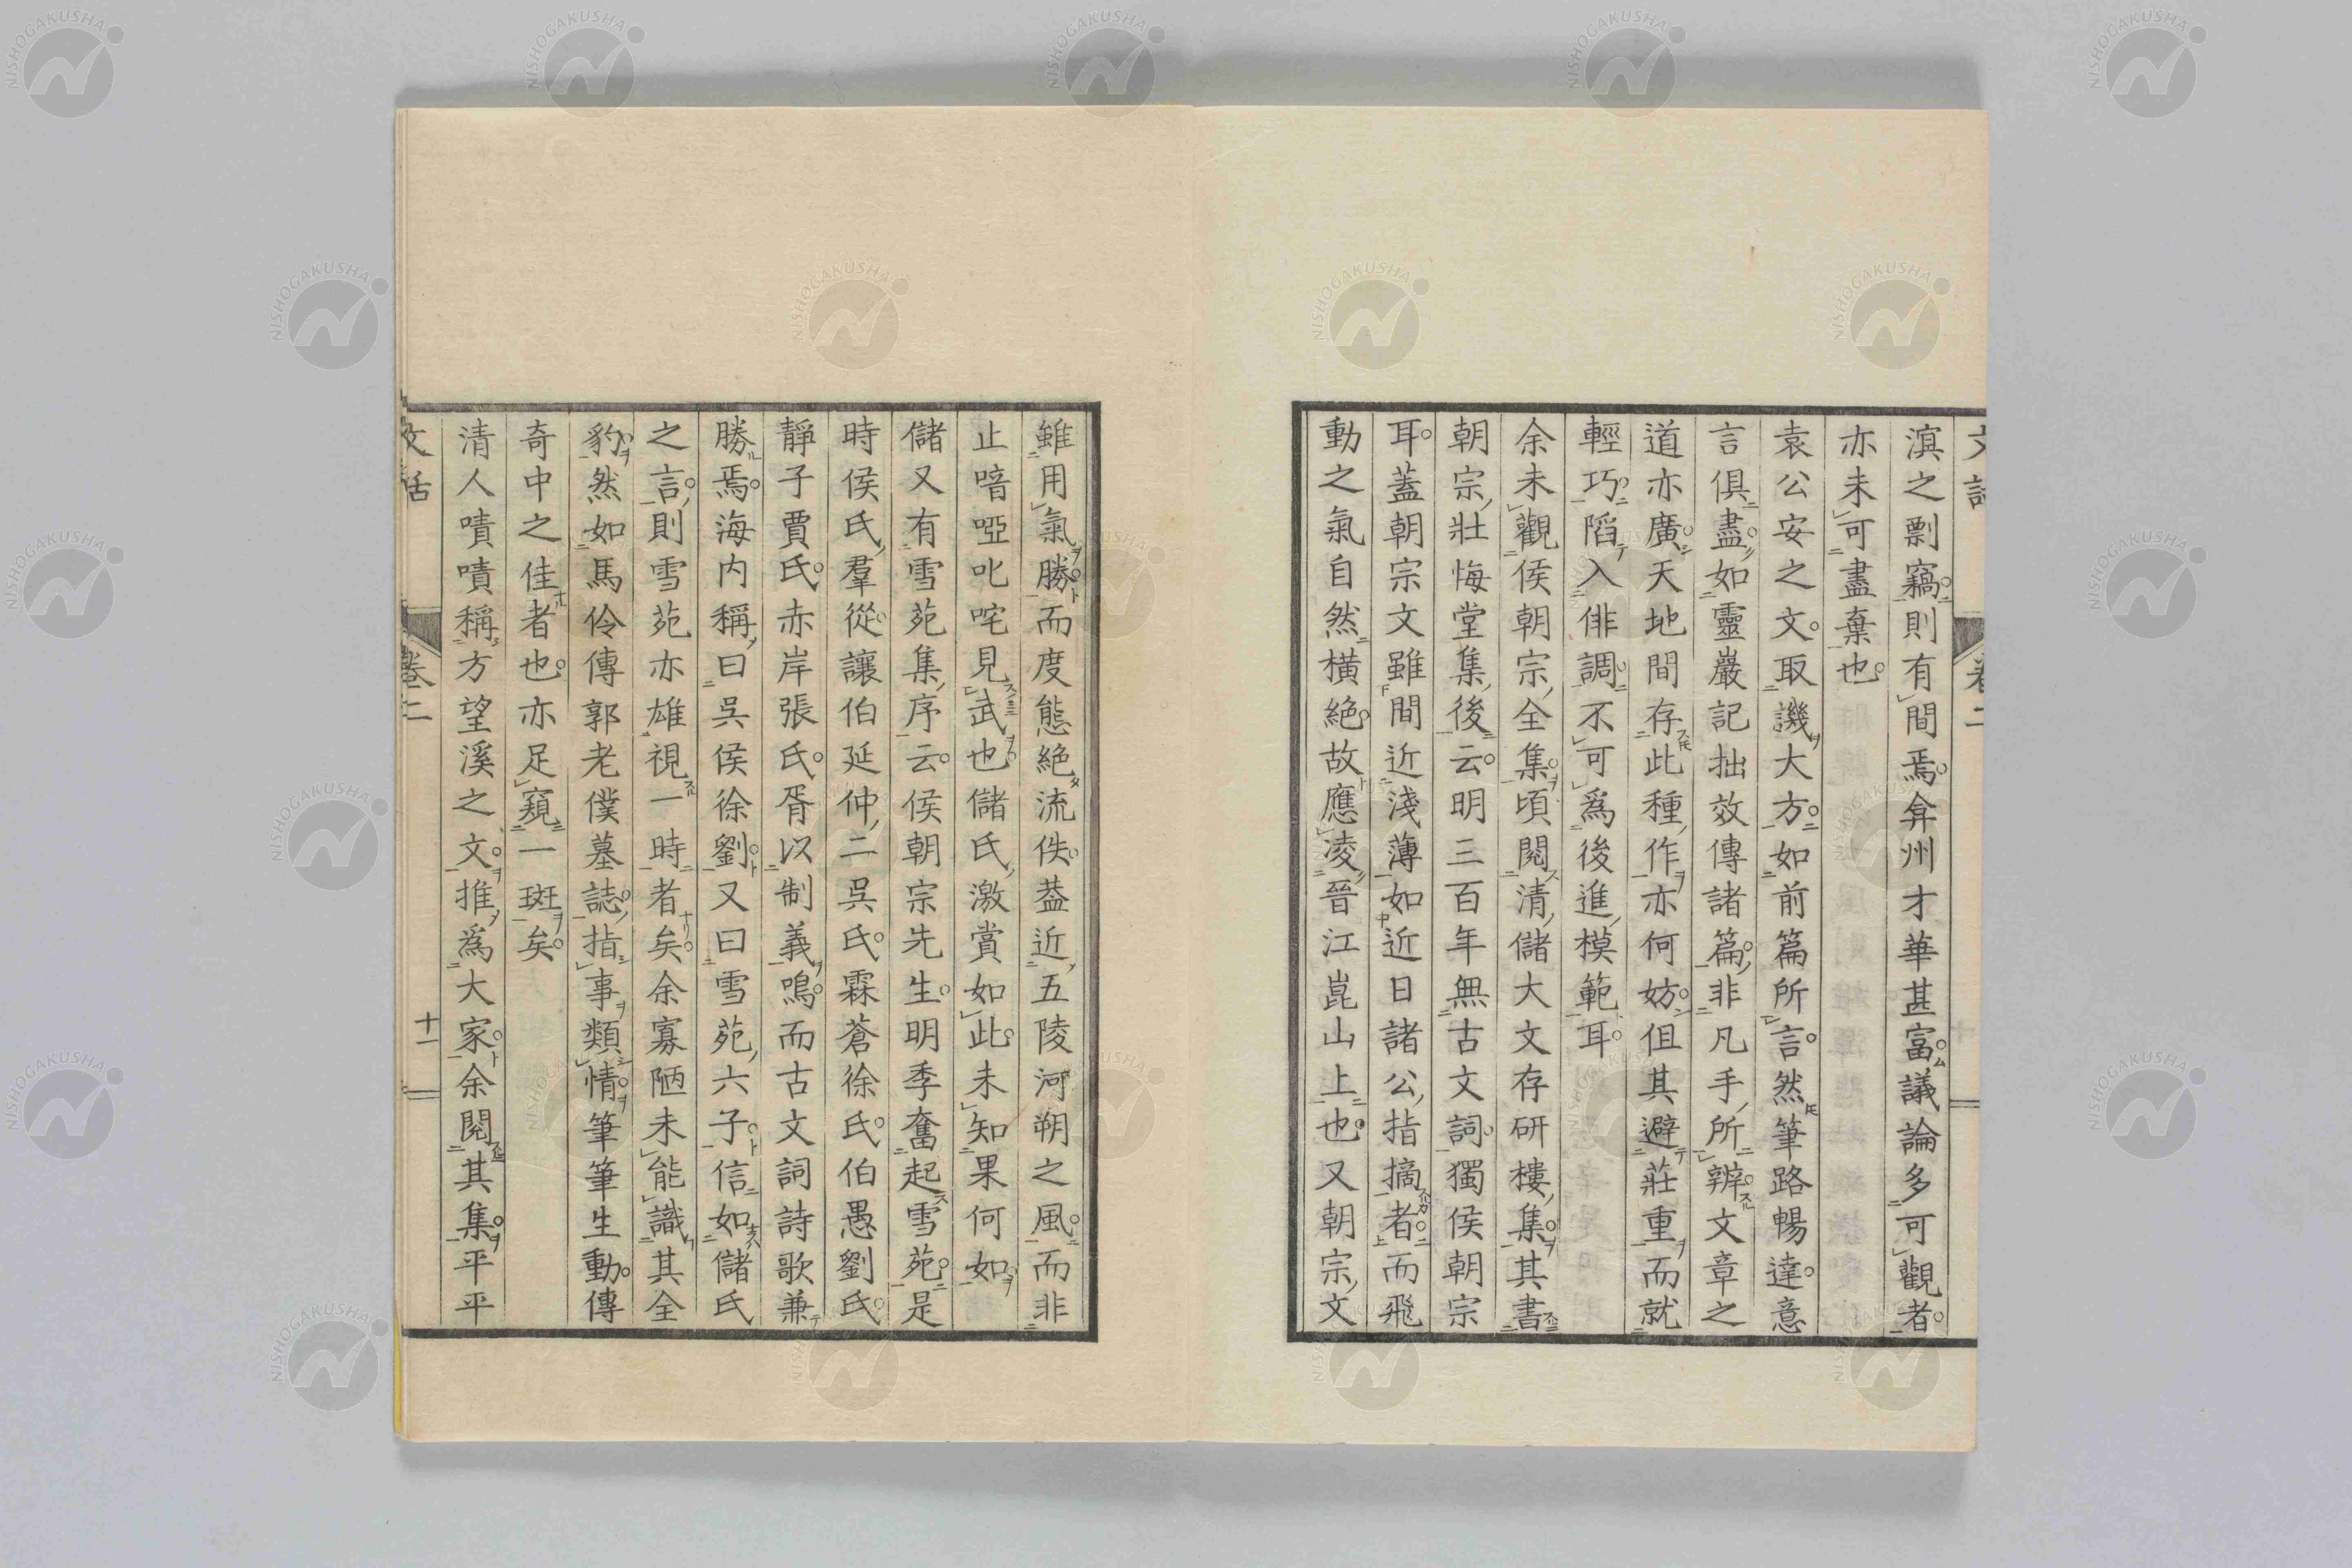 滇之剽竊則有間焉弇州才華甚富議論多可觀者
亦未可盡棄也
袁公安之文取譏大方如前篇所言然筆路暢達意
言俱盡如靈巖記拙效傳諸篇非凡手所辨文章之
道亦廣天地間存此種作亦何妨但其避莊重而就
輕巧陷入俳調不可爲後進模範耳
余未觀侯朝宗全集頃閱清儲大文存研樓集其書
朝宗壯悔堂集後云明三百年無古文詞獨侯朝宗
耳蓋朝宗文雖間近淺薄如近日諸公指摘者而飛
動之氣自然橫絶故應凌晉江崑山上也又朝宗文
雖用氣勝而度態絶流佚葢近五陵河朔之風而非
止喑啞叱咤見武也儲氏激賞如此未知果何如
儲又有雪苑集序云侯朝宗先生明季奮起雪苑是
時侯氏羣從讓伯延仲二吳氏霖蒼徐氏伯愚劉氏
靜子賈氏赤岸張氏胥以制義鳴而古文詞詩歌兼
勝焉海内稱曰吳侯徐劉又曰雪苑六子信如儲氏
之言則雪苑亦雄視一時者矣余寡陋未能識其全
豹然如馬伶傳郭老僕墓誌指事類情筆筆生動傳
奇中之佳者也亦足窺一斑矣
清人嘖嘖稱方望溪之文推爲大家余閱其集平平
文話 卷二 十一
NISHOGAKUSHA